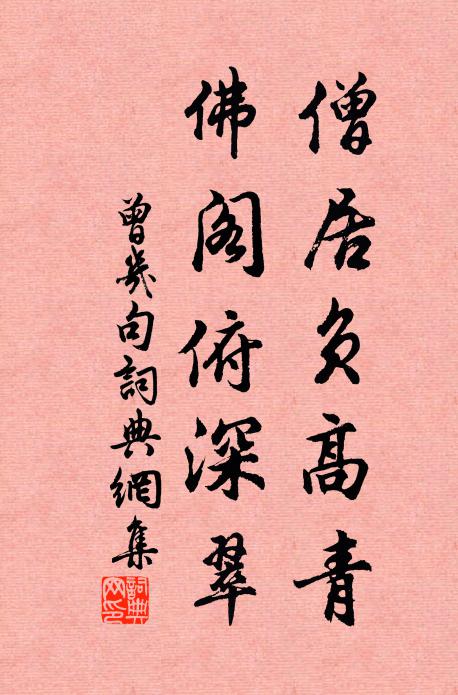 僧居負高青
佛閣俯深翠
曾幾句詞典網集
詞典
網印